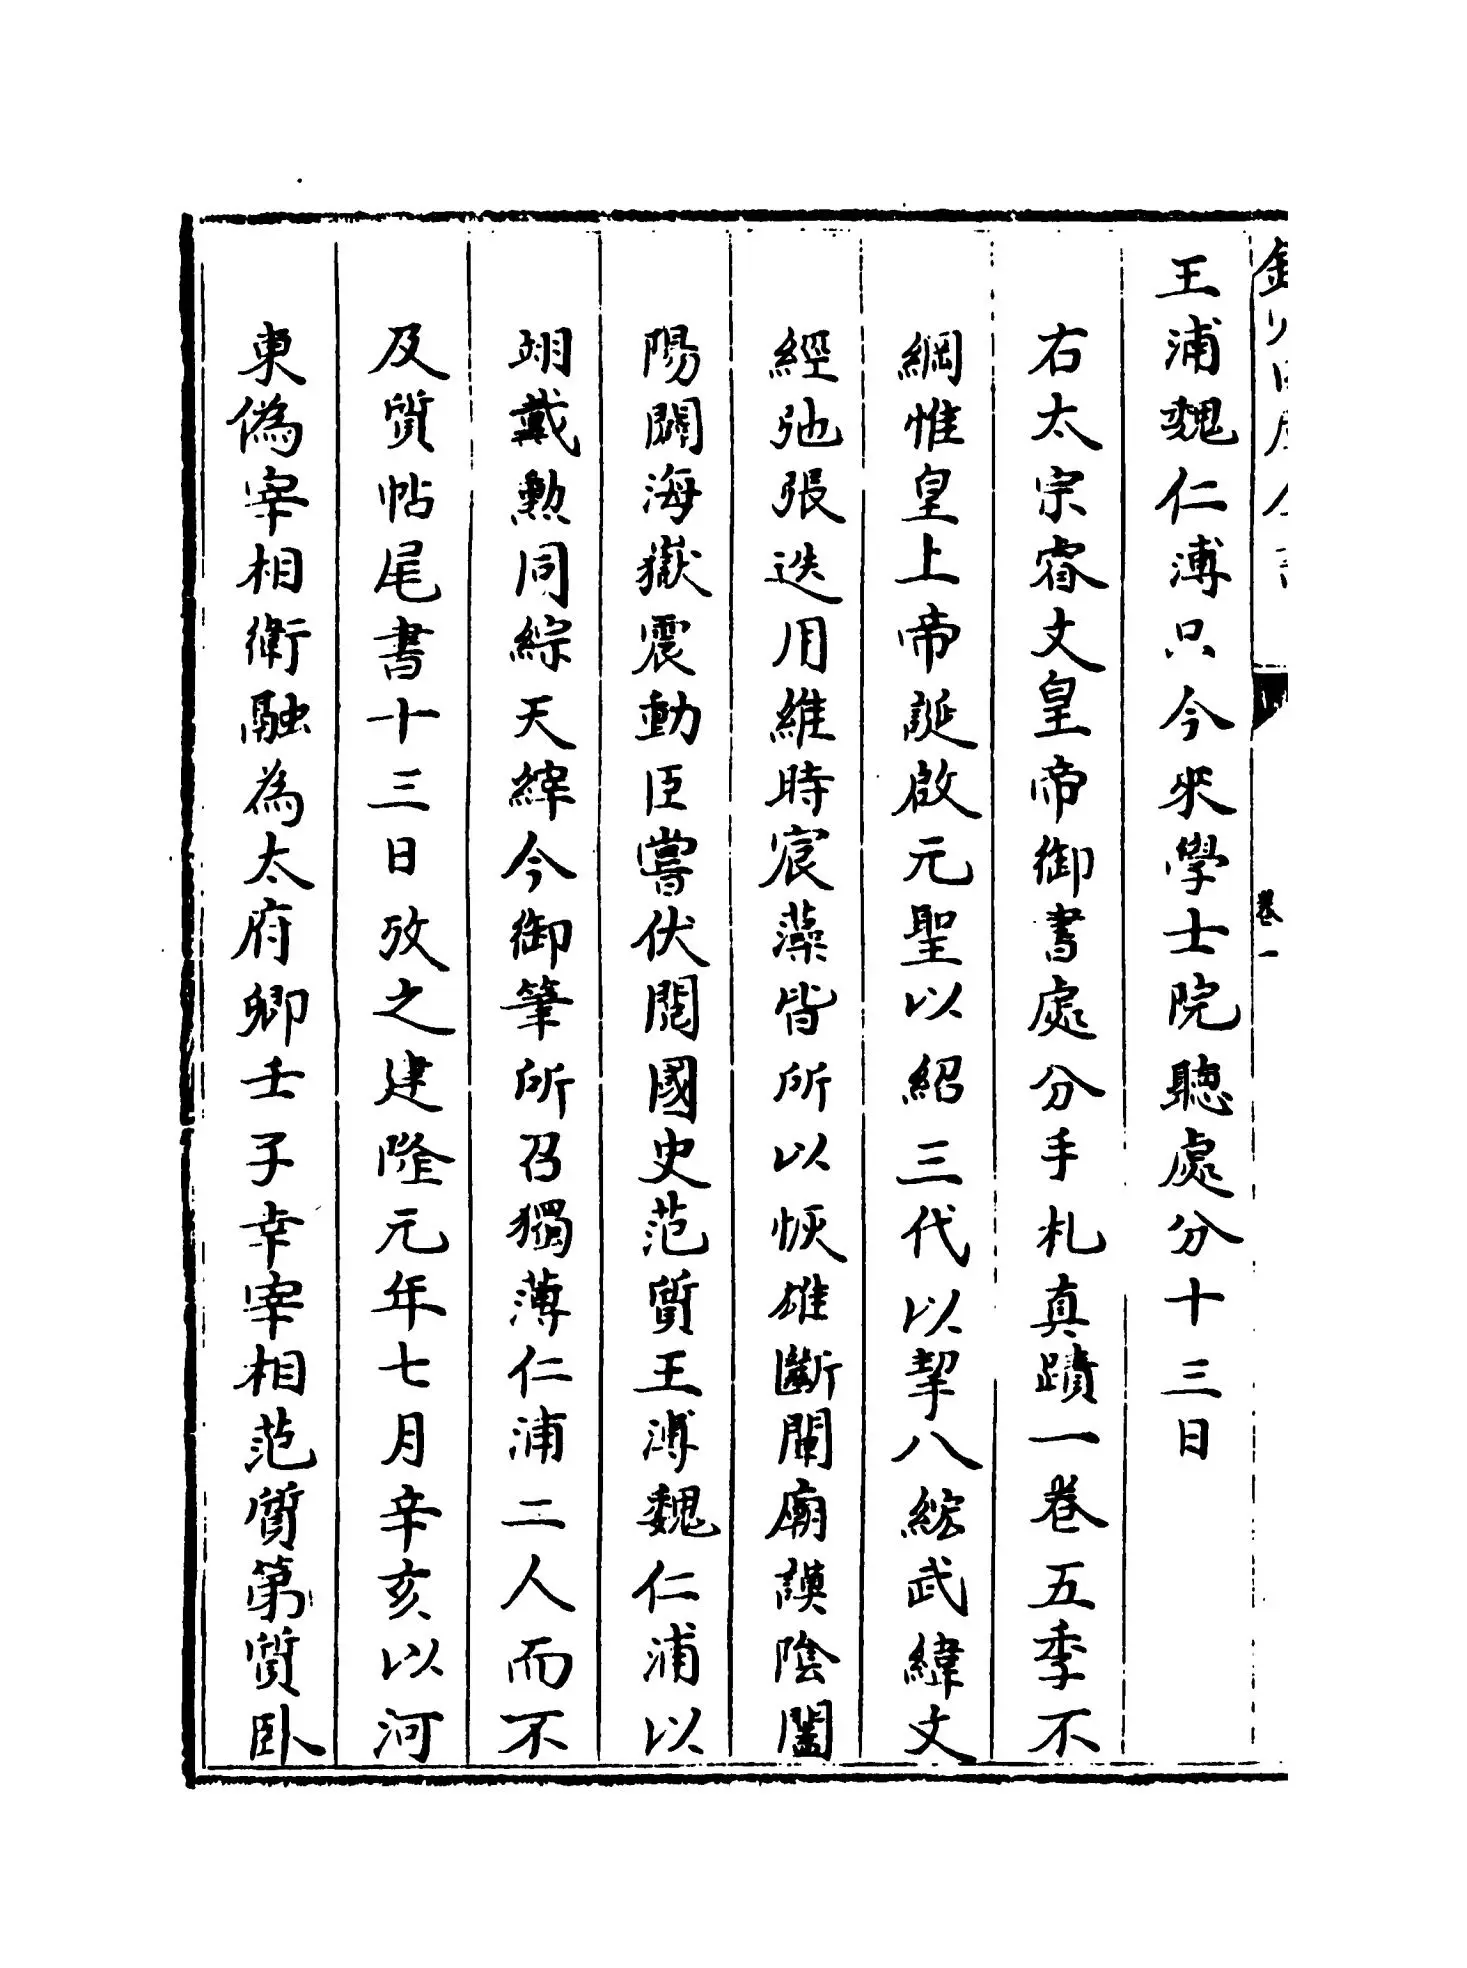 王浦魏仁溥只今來學士院聽處分十三日
右太宗睿文皇帝御書處分手札真蹟一卷五季不
綱惟皇上帝誕啟元聖以紹三代以挈八綋武緯文
經弛張迭用維時宸藻皆所以恢雄斷闡廟謨陰闔
陽闢海嶽震動臣嘗伏閱國史范質王溥魏仁浦以
翊戴勲同綜天緯今御筆所召獨薄仁浦二人而不
及質帖尾書十三日攷之建隆元年七月辛亥以河
東偽宰相衛融為太府卿壬子幸宰相范質第質卧
卷一